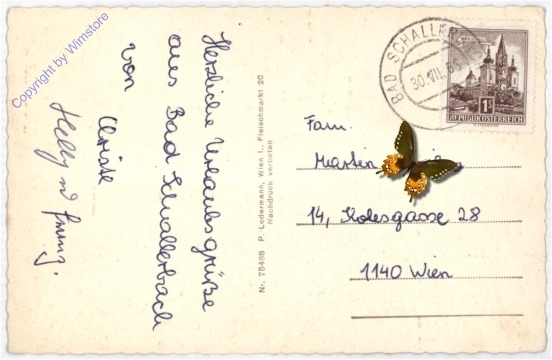 Copyright by Wimstore
Herzliche Urlaubsgrüße
aus Bad Schallerbach
von
Christl
Helly und
Nr. 75488 P. Ledermann, Wien I., Fleischmarkt 20
Nachdruck verboten
BAD SCHALLERB
30.VIII.65
1S
REPUBLIK ÖSTERREICH
Fam.
Martin
14, 28
1140 Wien